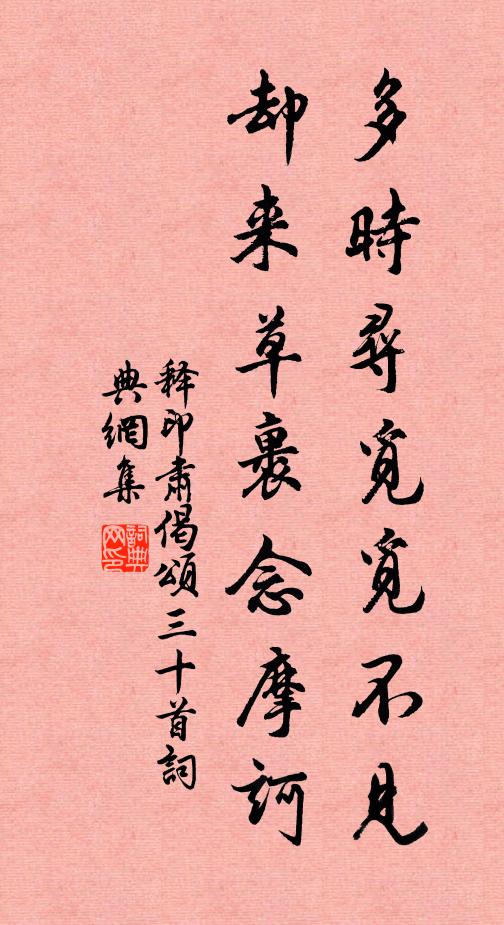 多時尋覓覓不見
却来草裹念摩訶
释印肅偈頌三十首詞
典網集
詞典网印